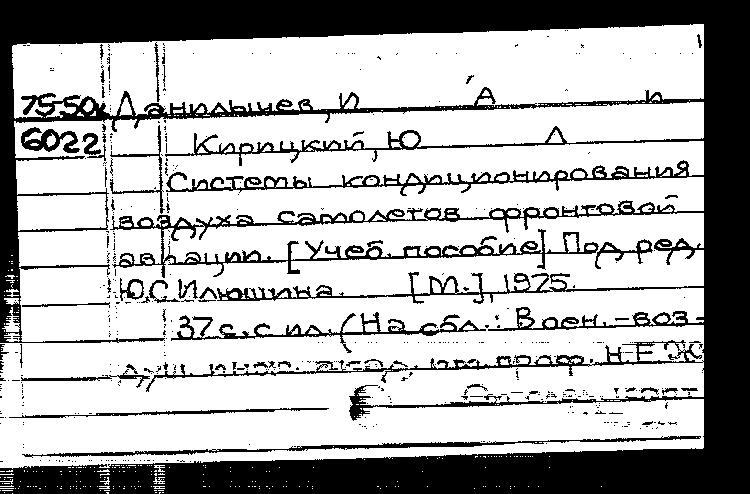 75-50к Данилычев, И А п
6022 Кирицкий, Ю Л
Системы кондиционирования
воздуха самолетов фронтовой
авиации. [Учеб. пособие]. Под ред.
Ю.С Илюшина. [М.], 1975.
37 с. с ил. (На обл.: Воен.-воз-
душ. инж. акад. им. проф. Н.Е.Ж